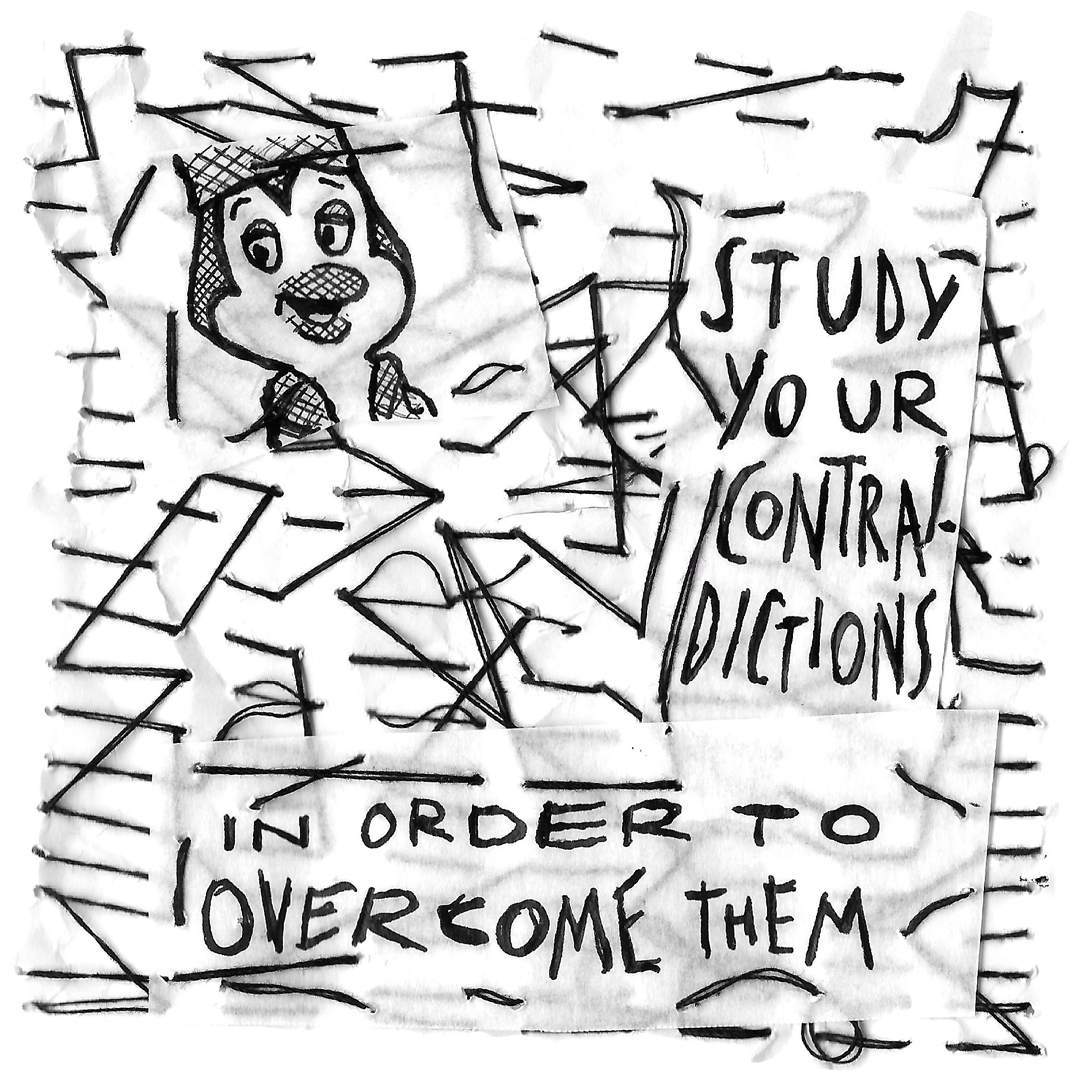 STUDY
YOUR
CONTRA-
DICTIONS
IN ORDER TO
OVERCOME THEM